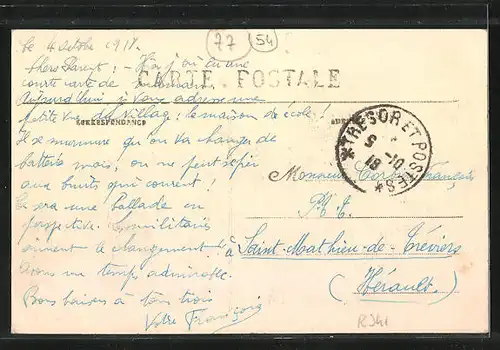 77 54
Le 4 Octobre 1918.
Chers Parents : - Hier j'ai eu une
courte carte de
Aujourd'hui je vous adresse une
petite vue du Village : la maison de école !
Il se murmure qu'on va changer de
batterie mais, on ne peut se fier
aux bruits qui courent !
Ce sera une ballade en
perspective. Les militaires
aiment le changement !
Avons un temps admirable.
Bons baisers à tous trois
Votre François
CARTE POSTALE
CORRESPONDANCE
TRESOR ET POSTES
5 -10
18
Monsieur François
P. T.
à Saint-Mathieu-de-Tréviers
(Hérault)